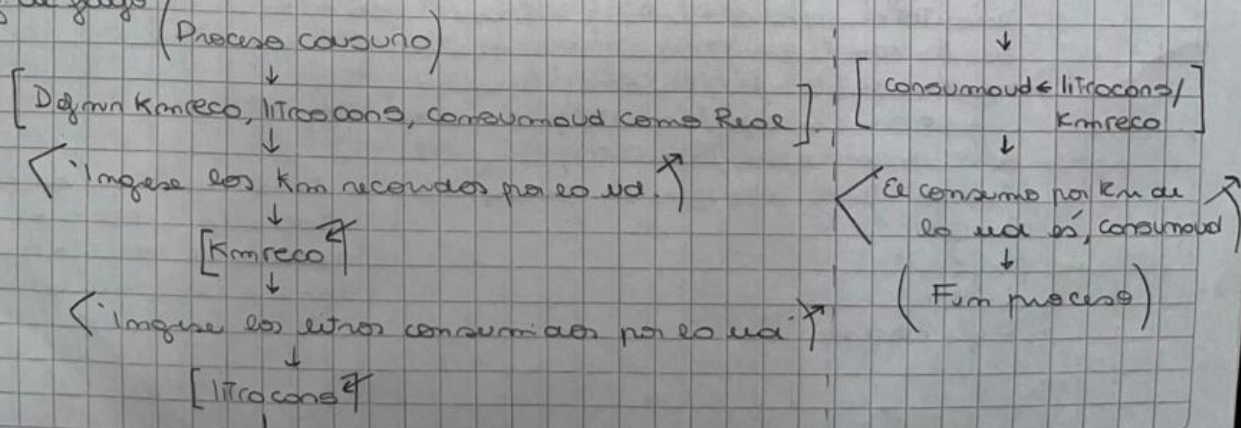 (Proceso consumo)
[Definir Kmreco, litrocons, consumoud como Real]
"Ingese los Km recorridos por la ud."
[Kmreco]
"ingrese los litros consumidos por la ud"
[litrocons]
[consumoud ← litrocons/
Kmreco]
"El consumo por Km de
la ud es", consumoud
(Fin proceso)